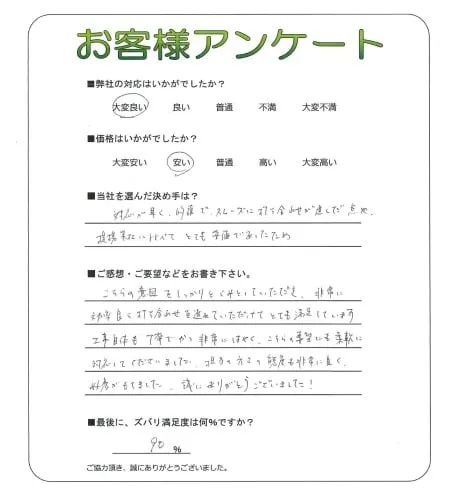 お客様アンケート
■弊社の対応はいかがでしたか？
大変良い 良い 普通 不満 大変不満
■価格はいかがでしたか？
大変安い 安い 普通 高い 大変高い
■当社を選んだ決め手は？
対応が早く、的確で、スムーズに打ち合わせが進んだ点や、
提携業社に比べて とても安価であったため
■ご感想・ご要望などをお書き下さい。
こちらの意図をしっかりとくみとっていただき、非常に
効率良く打ち合わせを進めていただけてとても満足しています
工事自体も 丁寧でかつ非常にはやく、こちらの要望にも柔軟に
対応してくださいました。担当の方々の態度も非常に良く、
好感がもてました。誠にありがとうございました！
■最後に、ズバリ満足度は何%ですか？
90 %
ご協力頂き、誠にありがとうございました。